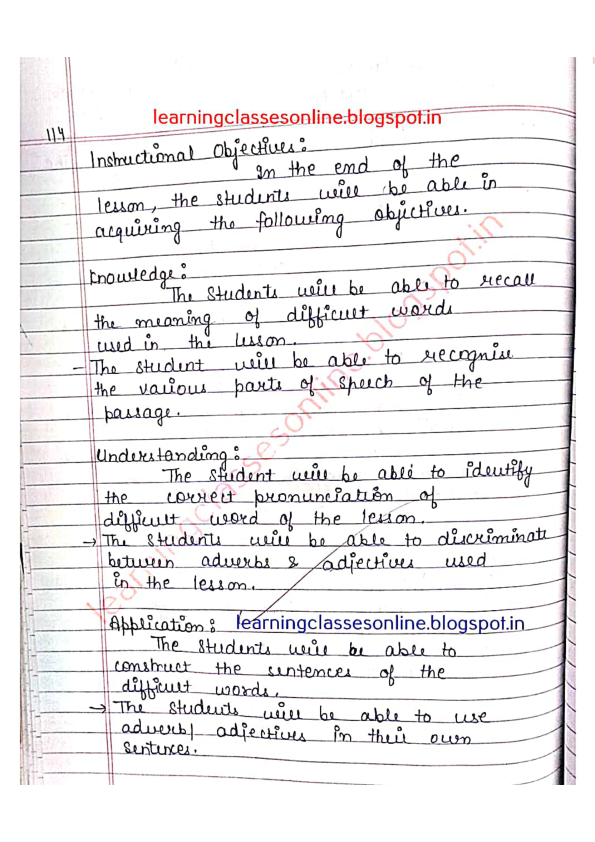 learningclassesonline.blogspot.in
114
Instructional Objectives:
In the end of the
lesson, the students will be able in
acquiring the following objectives.
Knowledge:
The Students will be able to recall
the meaning of difficult words
used in the lesson.
- The student will be able to recognise
the various parts of speech of the
passage.
Understanding:
The student will be able to identify
the correct pronunciation of
difficult word of the lesson.
→ The Students will be able to discriminate
between adverbs & adjectives used
in the lesson.
learningclassesonline.blogspot.in
Application: learningclassesonline.blogspot.in
The Students will be able to
construct the sentences of the
difficult words.
→ The Students will be able to use
adverb/ adjectives in their own
Sentences.